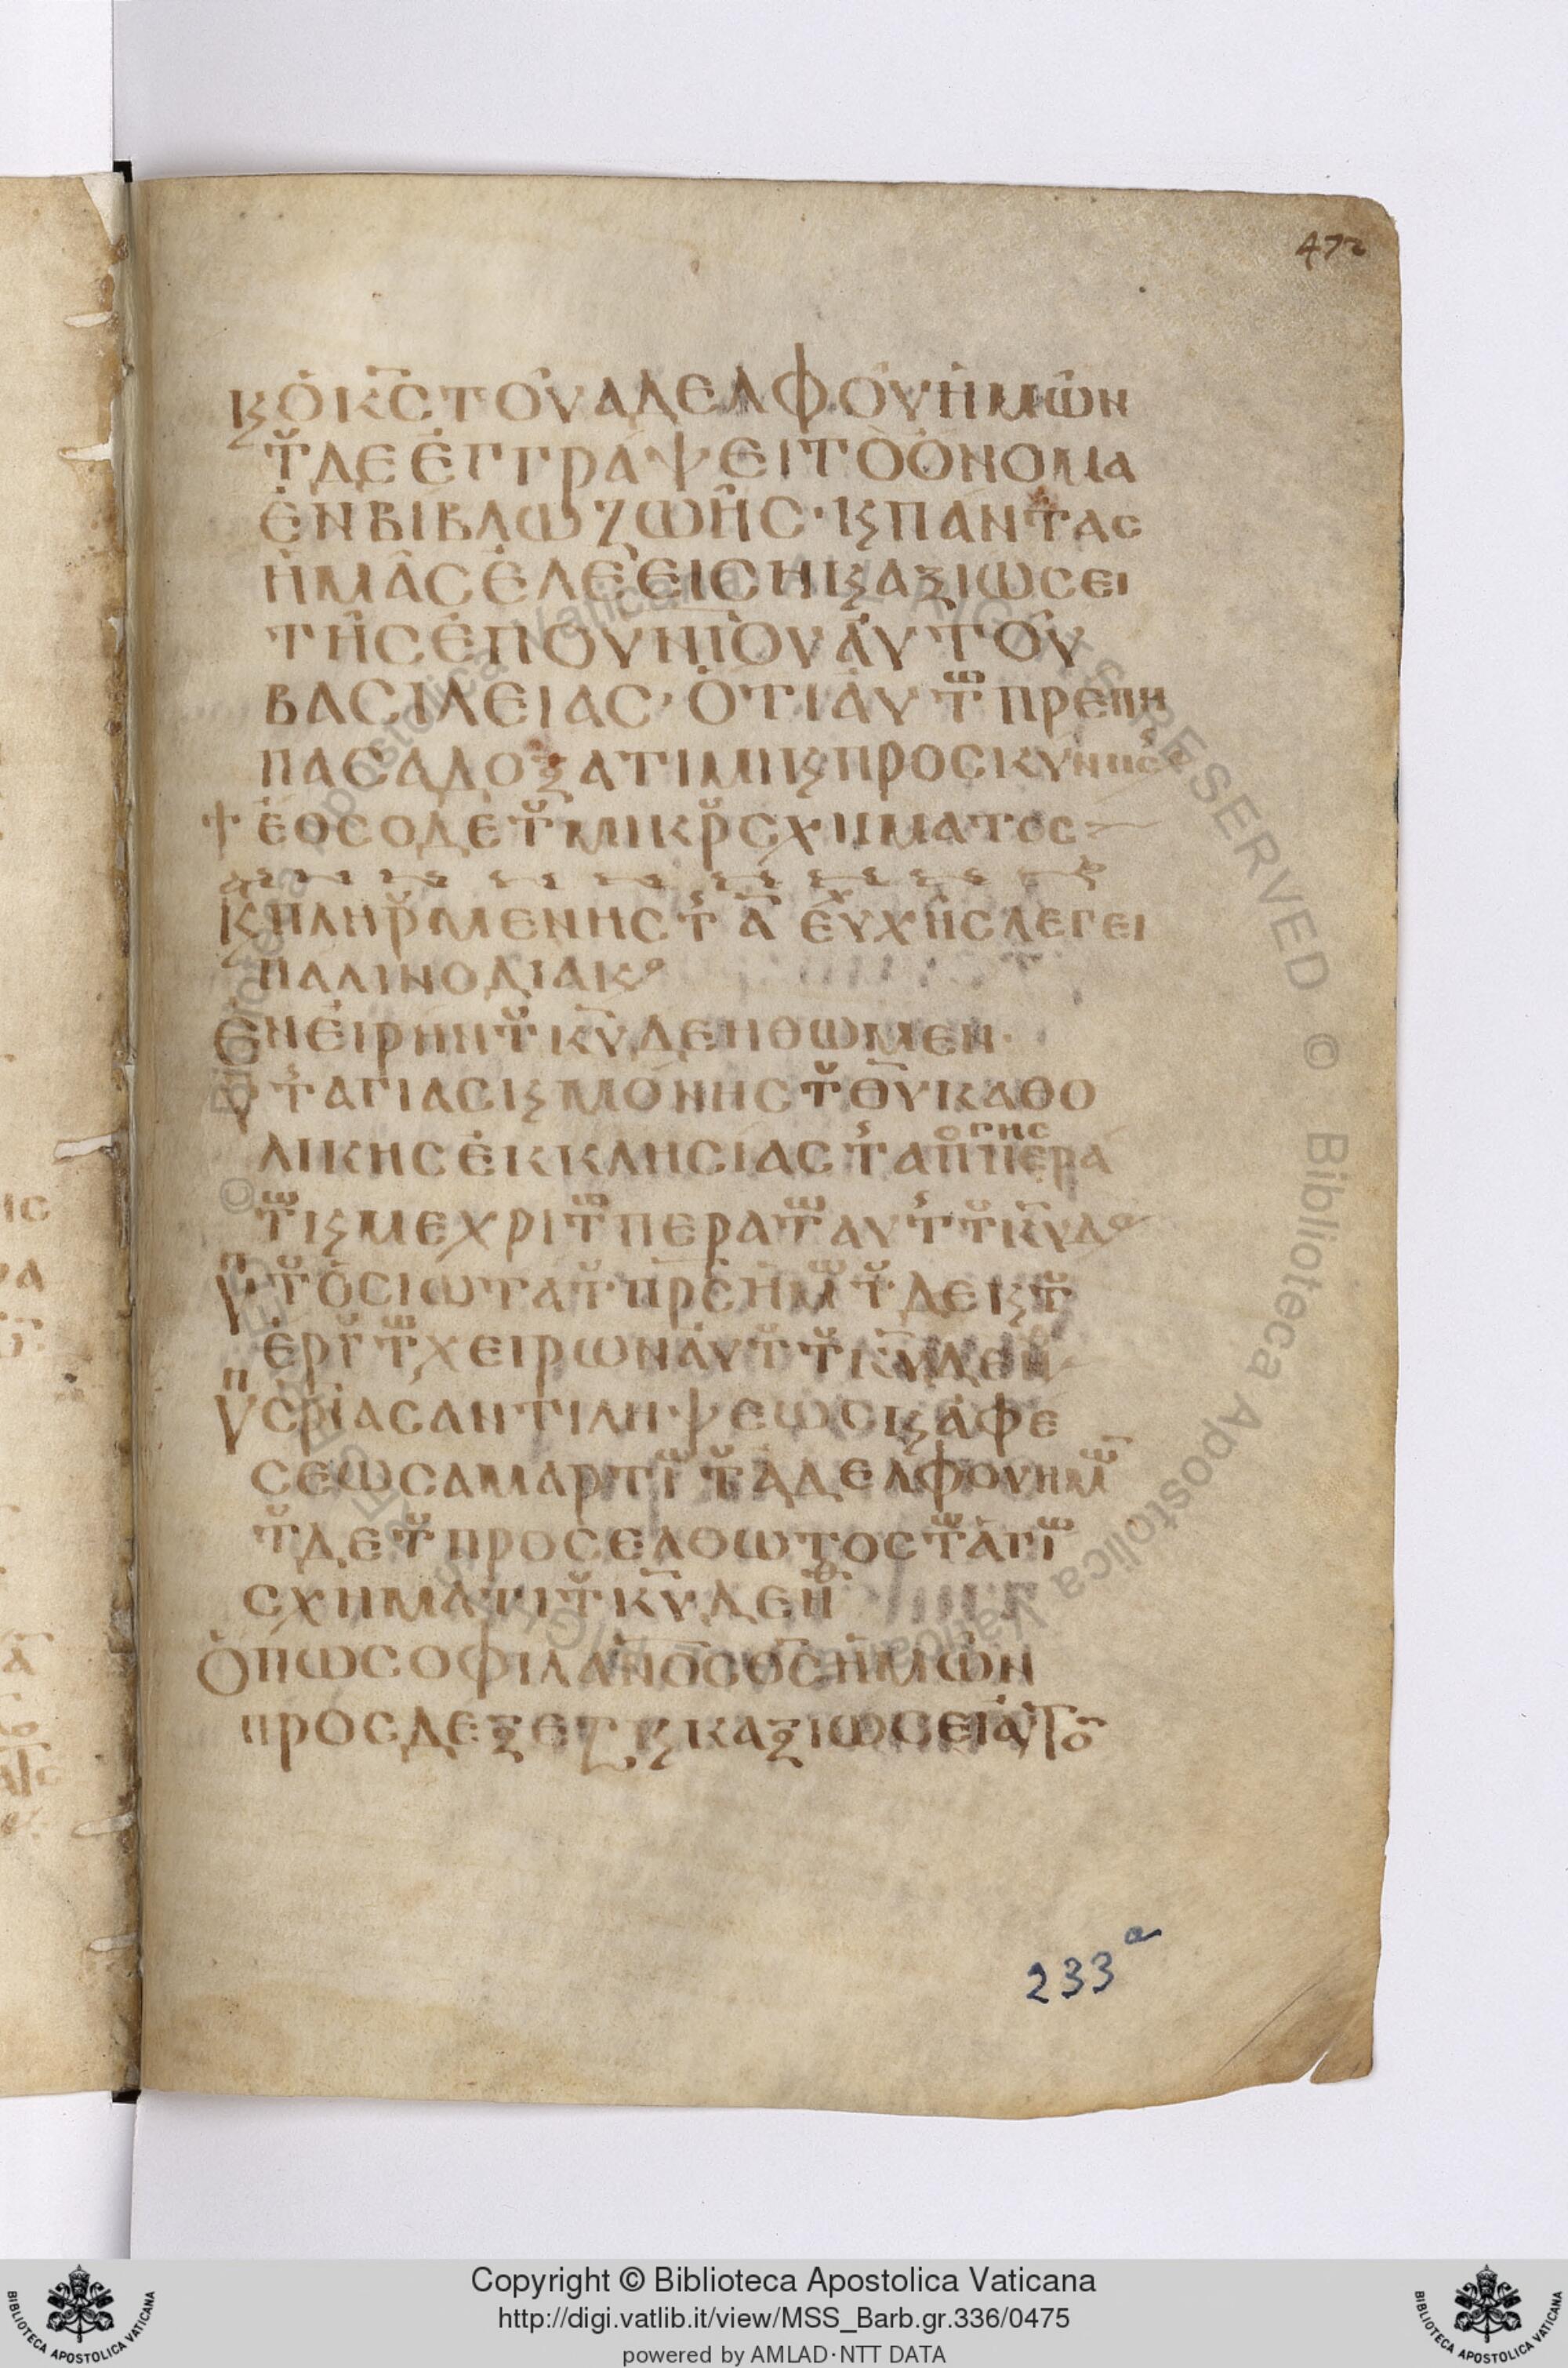 472
ϗ ὁ κ̅ς̅ τοῦ ἀδελφοῦ ἡμῶν
τοῦδε ἐγγράψει τὸ ὄνομα
ἐν βίβλω ζωῆς· ϗ πάντας
ἡμᾶς ἐλεεῖσῃ ϗ αξιωσει
τῆς ἐπουν̅ίου αὐτοῦ
βασιλείας· ὅτι αὐτῶ πρέπη
πασα δοξα τιμι ϗ προσκυνησς
ἑος ο δὲ τοῦ μικροῦ σχηματος
ϗ πληρ μενης τ α̅ εὐχῆς λεγει
παλιν ο διακο
εν εἰρηνι τοῦ κ̅υ̅ δεηθωμεν·
υ τ αγιας ϗ μόνης τοῦ θ̅υ̅ καθο
λικης ἐκκλησίας τ απ περά
των ϗ μεχρι των περατων αυτ τοῦ κ̅υ̅ δ
υπ τοῦ ὁσιωτατου π̅ρ̅ς̅ ἡμων τοῦδε ϗ τοῦ
ἐργ των χειρων αὐτοῦ τοῦ κ̅υ̅ δεη
υπ σ̅ρ̅ίας αντιληψεως ϗ ἀφε
σεως αμαρτιων τοῦ ἀδελφου ημων
τοῦδε τοῦ προσελθωτος τω ἁγίω
σχηματι τοῦ κ̅υ̅ δεηθ
ὅπως ο φιλα̅ν̅ο̅ς θ̅ς̅ ἡμῶν
προσδεξετ ϗ καξιωσει αυτο
233 a
Copyright © Biblioteca Apostolica Vaticana
http://digi.vatlib.it/view/MSS_Barb.gr.336/0475
powered by AMLAD·NTT DATA
BIBLIOTECA APOSTOLICA VATICANA
BIBLIOTECA APOSTOLICA VATICANA